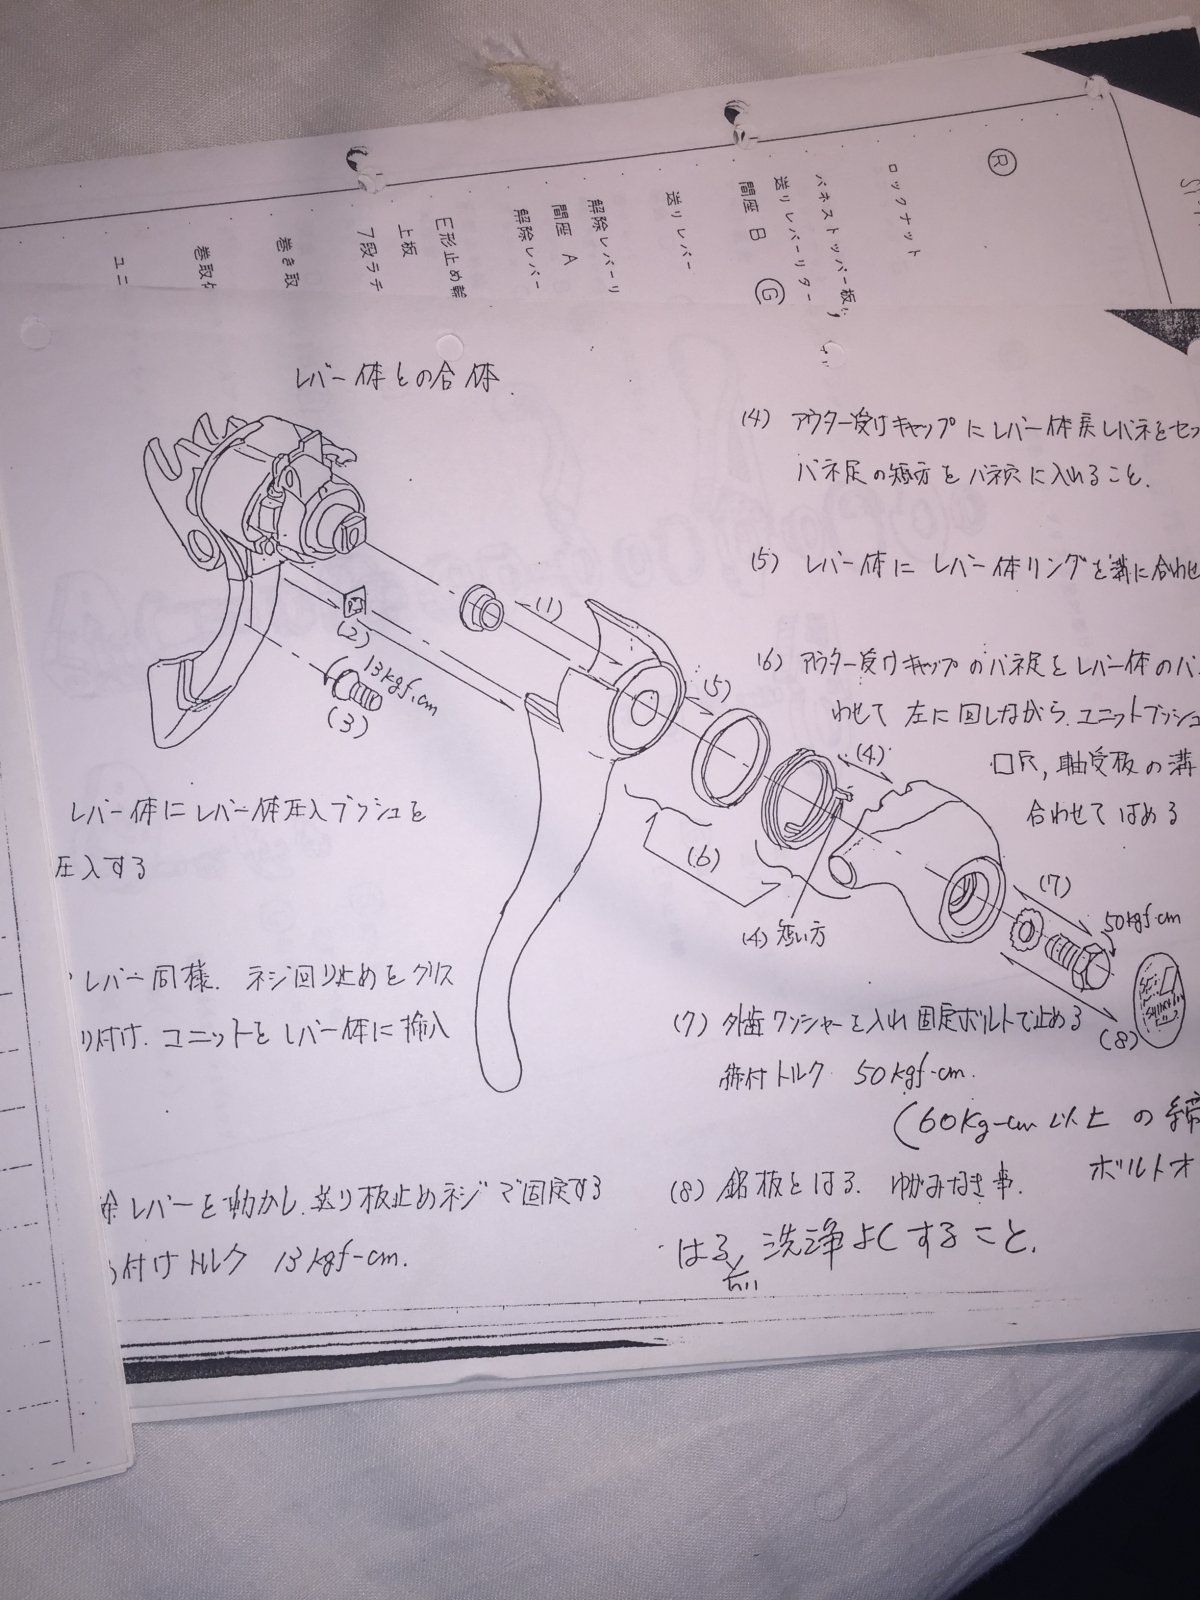 R
ロックナット
バネストッパー板
送りレバーリター
間座 B
G
送りレバー
解除レバーリ
間座 A
解除レバー
E形止め輪
上板
7段ラテ
巻き取
巻取
ユニ
レバー体との合体
(1)
(2)
(3)
13kgf.cm
(5)
(4)
(6)
(4) 短い方
(7)
50kgf-cm
(8)
レバー体にレバー体圧入ブッシュを
圧入する
レバー同様. ネジ回り止めをグリス
り付け. ユニットをレバー体に挿入
レバーを動かし. 送り板止めネジで固定する
付けトルク 13kgf-cm.
(4) アウター受けキャップにレバー体戻しバネをセッ
バネ足の短方をバネ穴に入れること.
(5) レバー体にレバー体リングを溝に合わせ
(6) アウター受けキャップのバネ足をレバー体のバ
わせて 左に回しながら. ユニットブッシュ
軸受板の溝
合わせてはめる
(7) 外歯ワッシャーを入れ固定ボルトで止める
締付トルク 50kgf-cm.
(60kg-cm以上の締
ボルトオ
(8) 銘板をはる. ゆがみなき事.
はる前 洗浄よくすること.